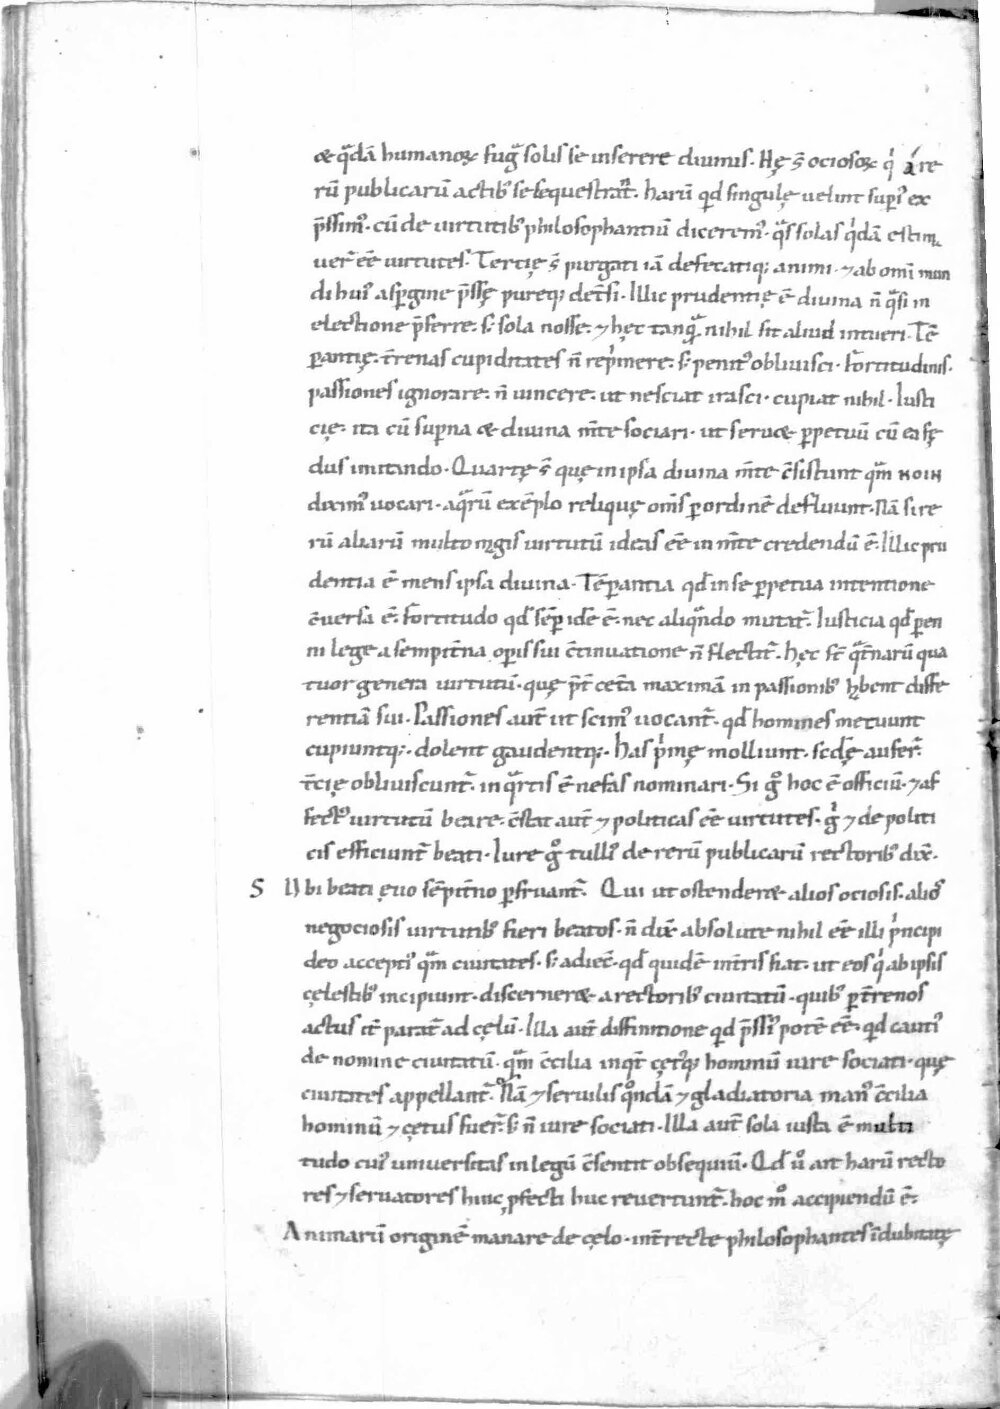 & q̄dā humanoꝝ fuḡ solis se inserere diuinis. Hę s̄ ociosoꝝ qⁱ a re
rū publicarū actib᷒ se sequestrant̄. Harū qd̄ singulę uelint sup̄i᷒ ex
p̄ssim᷒. cū de uirtutib᷒ philosophantiū dicerem᷒. q̄s solas qⁱdā estima
uer̄ eē uirtutes. Tertię s̄ purgati iā defecatiq; animi. ⁊ ab omī mun
di hui᷒ asp̄gine p̄ssę pureq; det̄si. Illic prudentię ē diuina n̄ q̄si in
electione p̄ferre. s; sola nosse. ⁊ hęc tanq̄ nihil sit aliud intueri. Tē
ꝑantię. t̄renas cupiditates n̄ rep̄mere. s; penit᷒ obliuisci. Fortitudinis.
passiones ignorare. n̄ uincere. ut nesciat irasci. cupiat nihil. Iusti
cię. ita cū sup̄na & diuina m̄te sociari. ut seru& ꝑpetuū cū ea fę
dus imitando. Quartę s̄ quę in ipsa diuina m̄te c̄sistunt qm̄ ΝΟΙΝ
dixim᷒ uocari. a q̄rū exēplo reliquę om̄s ꝑ ordinē defluunt. Nā si re
rū aliarū multo mgis uirtutū ideas eē in m̄te credendū ē. Illic pru
dentia ē mens ipsa diuina. Tēꝑantia qd̄ in se ꝑpetua intentione
c̄uersa ē. Fortitudo qd̄ sēꝑ idē ē. nec aliqn̄do mutat̄. Iusticia qd̄ ꝑen
ni lege a sempit̄na opis sui c̄tinuatione n̄ flectit̄. hęc st̄ q̄t̄narū qua
tuor genera uirtutū. quę p̄t̄ cet̄a maximā in passionib᷒ hn̄t diffe
rentiā sui. Passiones aut̄ ut scim᷒ uocant̄. qd̄ homines metuunt
cupiuntq;. dolent gaudentq;. has p̄mę molliunt. scd̄ę aufer̄.
t̄cię obliuiscunt̄. in q̄rtis ē nefas nominari. Si gͦ hoc ē officiū. ⁊ af
fect᷒ uirtutū beare. c̄stat aut̄ ⁊ politicas eē uirtutes. gⁱ ⁊ de politi
cis efficiunt̄ beati. Iure gͦ tulli᷒ de rerū publicarū rectorib᷒ dix̄.
S Ubi beati ęuo sēpit̄no ꝑfruant̄. Qui ut ostender& alios ociosis. alios
negociosis uirtutib᷒ fieri beatos. n̄ dix̄ absolute nihil eē illi p̄ncipi
deo accepti᷒ qm̄ ciuitates. s; adiec̄. qd̄ quidē int̄ris fiat. ut eos qⁱ ab ipsis
cęlestib᷒ incipiunt. discerner& a rectorib᷒ ciuitatū. quib᷒ ꝑ t̄renos
actus it̄ parat̄ ad cęlū. Illa aut̄ diffinitione qd̄ p̄ssi᷒ potē eē. qd̄ cauti᷒
de nomine ciuitatū. qm̄ c̄cilia inqt̄ cęt᷒q; hominū iure sociati. quę
ciuitates appellant̄. Nā ⁊ seruilis qͦndā ⁊ gladiatoria man᷒ c̄cilia
hominū ⁊ cętus fuer̄. s; n̄ iure sociati. Illa aut̄ sola iusta ē multi
tudo cui᷒ uniuersitas in legū c̄sentit obsequiū. Qd̄ uͦ ait harū recto
res ⁊ seruatores hinc ꝓfecti huc reuertunt̄. hoc mͦ accipiendū ē.
Animarū originē manare de cęlo. int̄ recte philosophantes īdubitatę